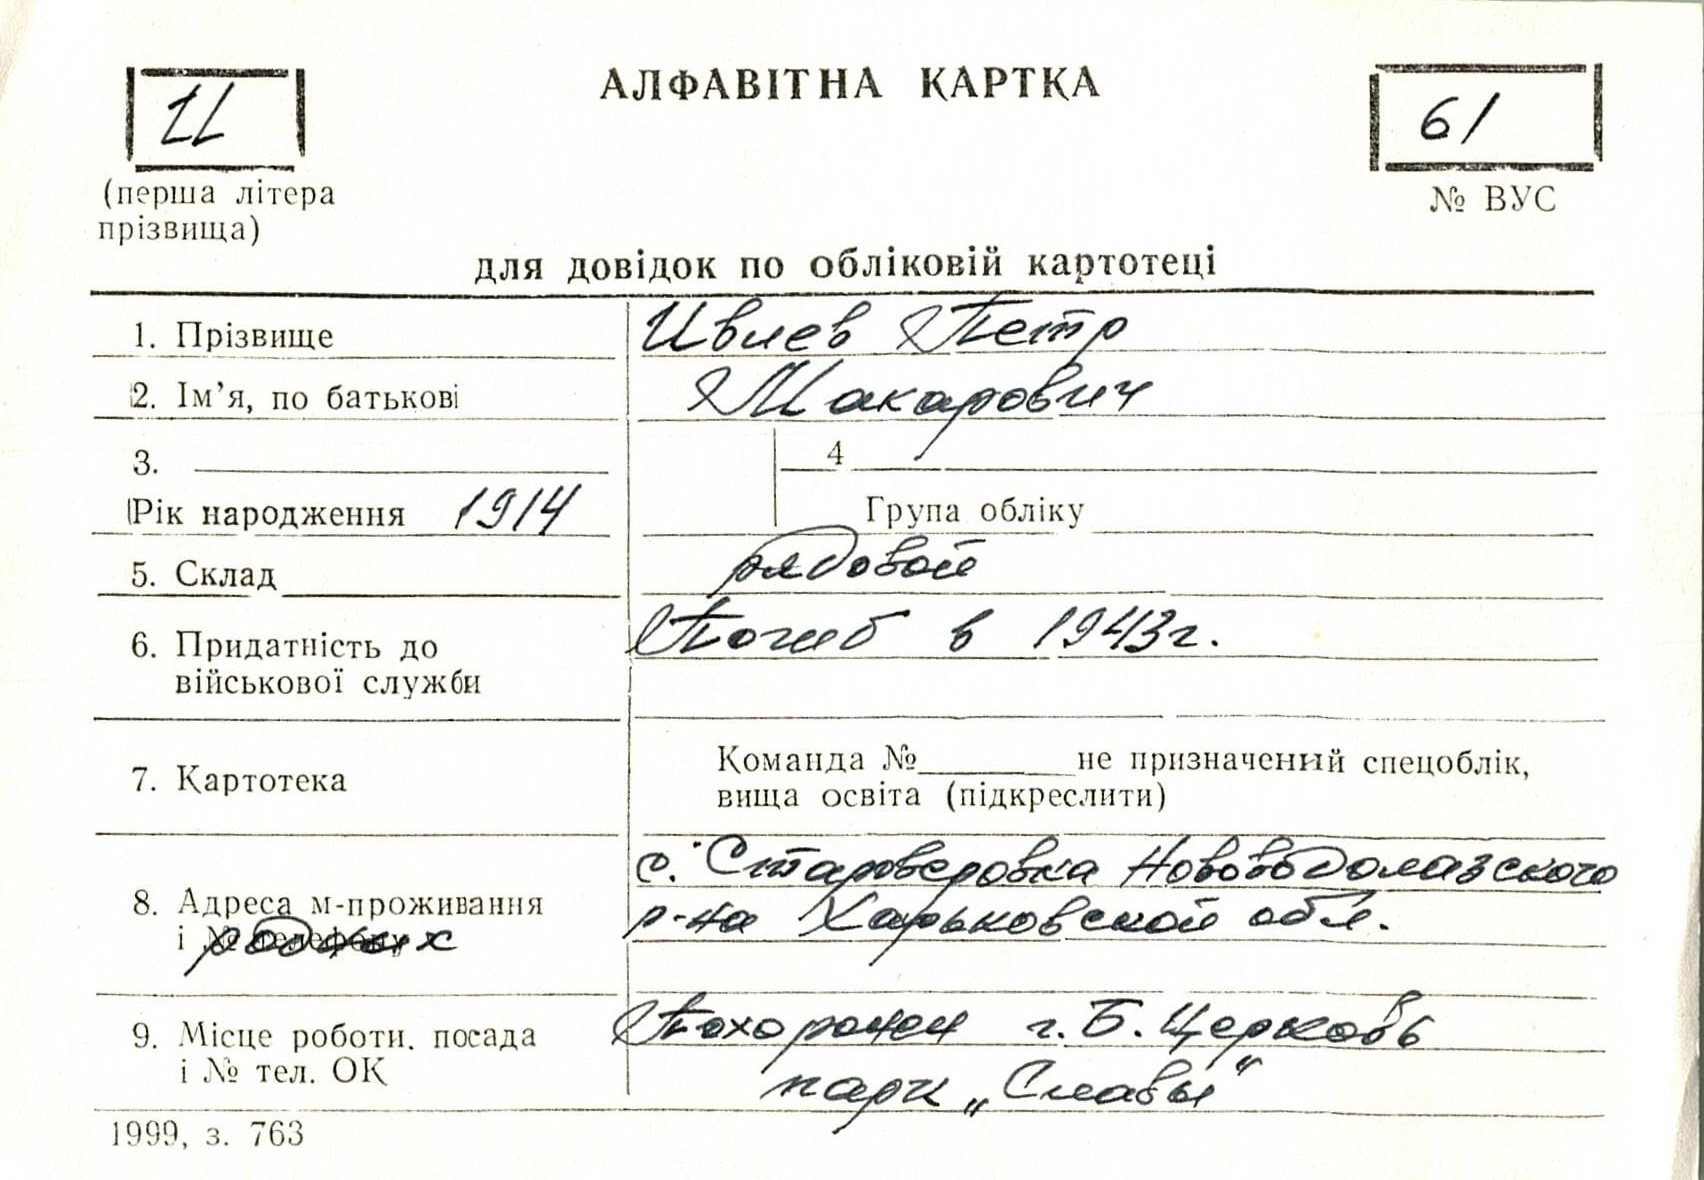 АЛФАВІТНА КАРТКА
И
61
(перша літера
прізвища)
№ ВУС
для довідок по обліковій картотеці
1. Прізвище Ивлев Петр
2. Ім'я, по батькові Макарович
3. 4
Рік народження 1914 Група обліку
5. Склад рядовой
6. Придатність до Погиб в 1943г.
військової служби
7. Картотека
Команда № не призначений спецоблік,
вища освіта (підкреслити)
с. Староверовка Нововодолазского
8. Адреса м-проживання р-на Харьковской обл.
і № телефону родных
9. Місце роботи. посада Похоронен г. Б. Церковь
і № тел. ОК парк „Славы"
1999, з. 763